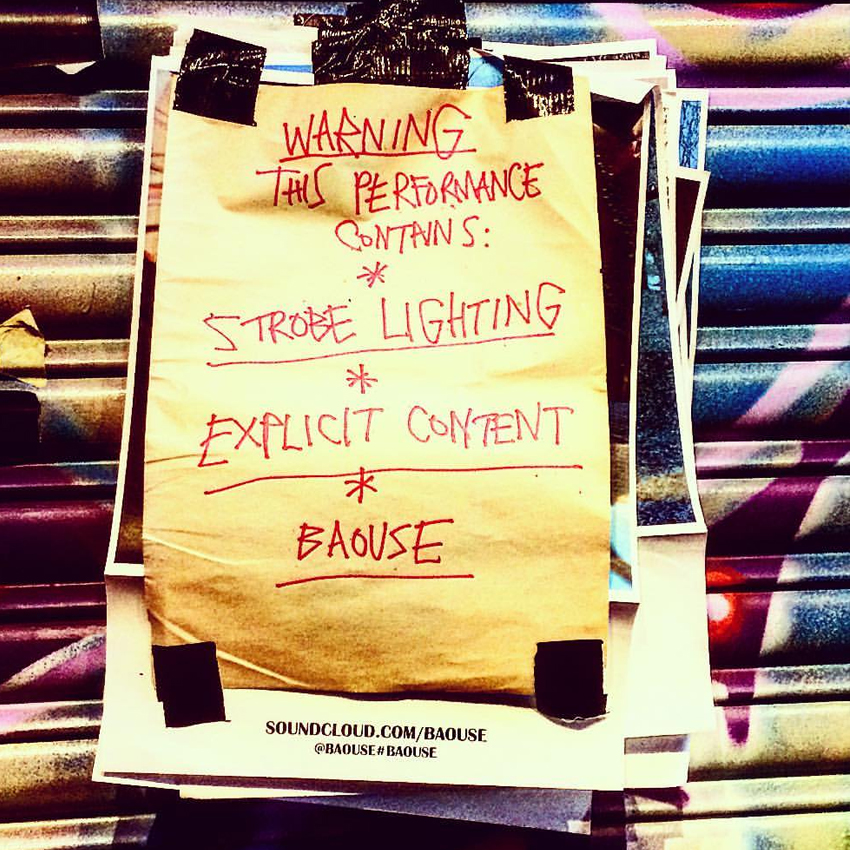 WARNING
THIS PERFORMANCE
CONTAINS:
*
STROBE LIGHTING
*
EXPLICIT CONTENT
*
BAOUSE
SOUNDCLOUD.COM/BAOUSE
@BAOUSE#BAOUSE